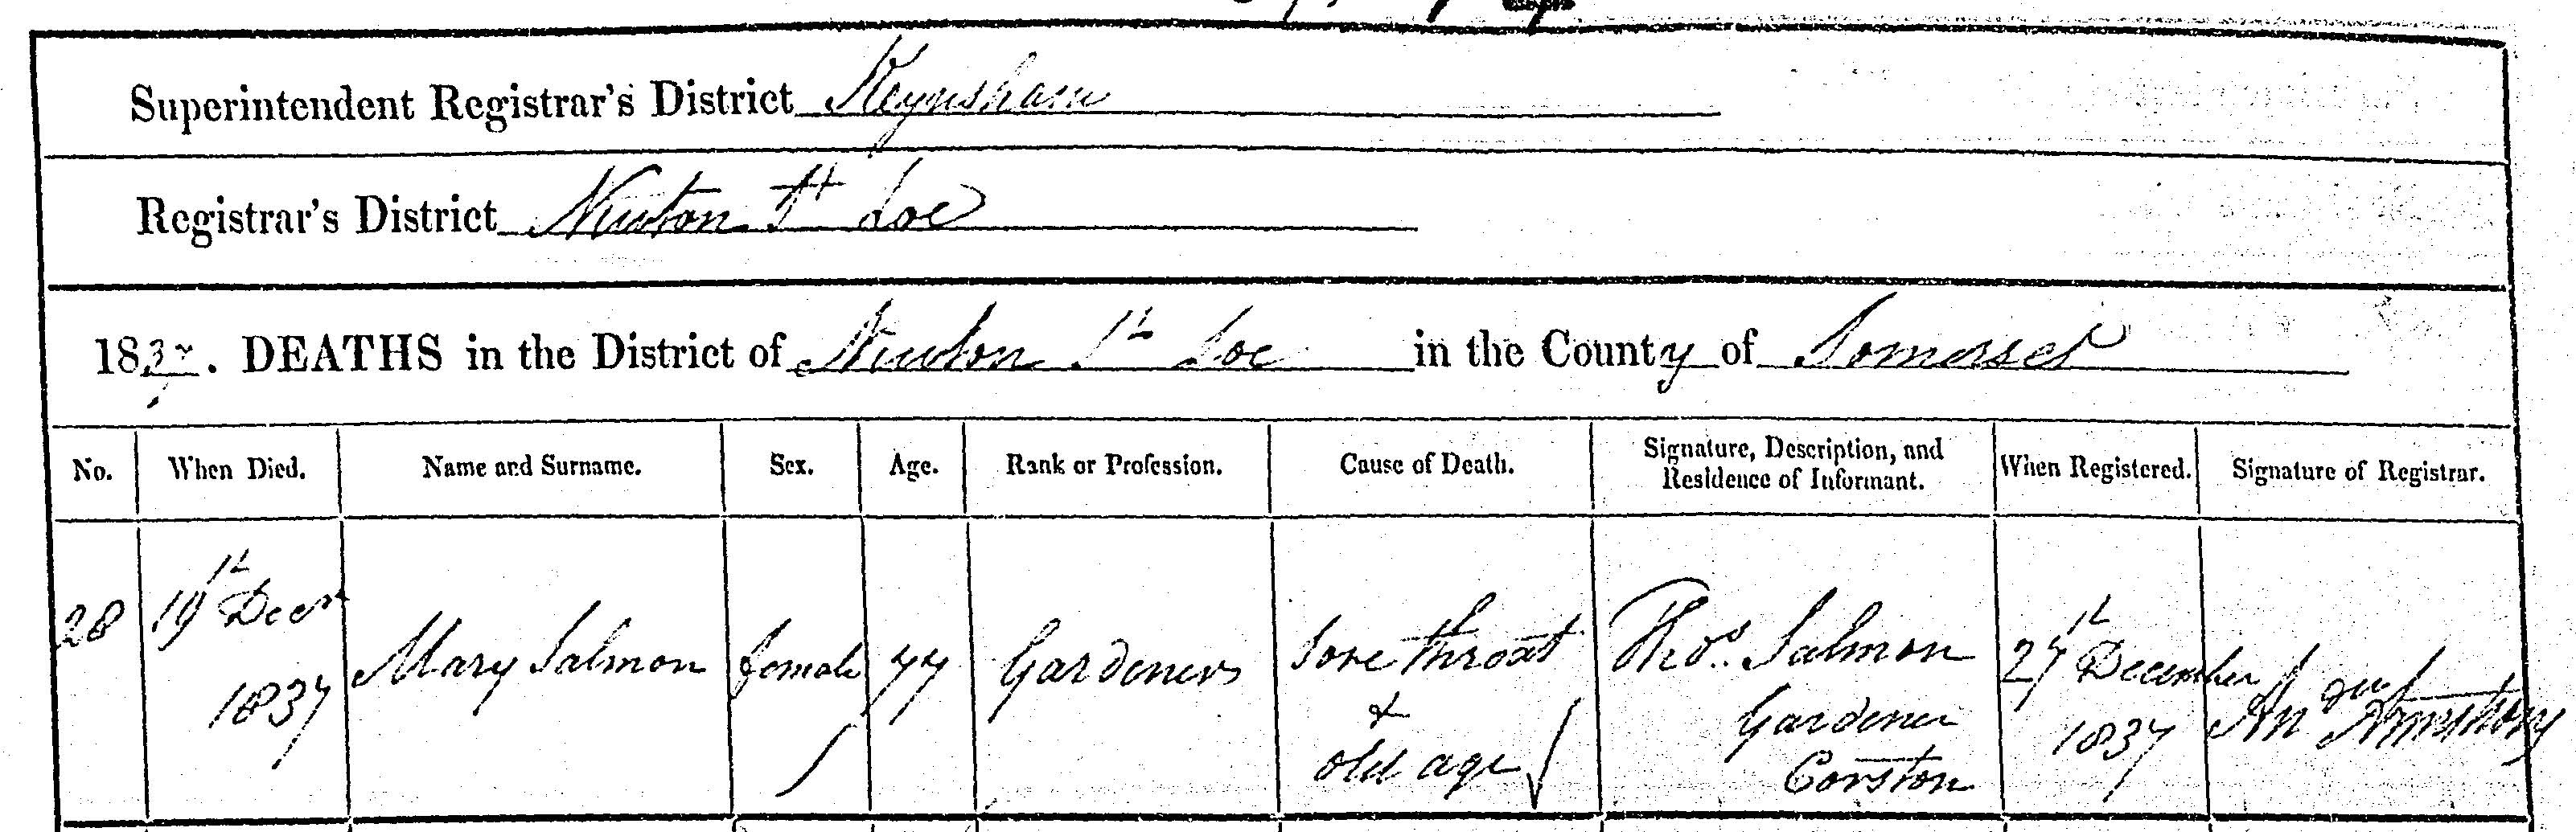 Superintendent Registrar's District Keynsham
Registrar's District Newton St Loe
1837. DEATHS in the District of Newton St Loe in the County of Somerset
No. When Died. Name and Surname. Sex. Age. Rank or Profession. Cause of Death. Signature, Description, and Residence of Informant. When Registered. Signature of Registrar.
28
19th Decr
1837
Mary Salmon
female
77
Gardeners
Sore throat
&
old age
Thos. Salmon
Gardener
Corston
27th December
1837
Armstrong